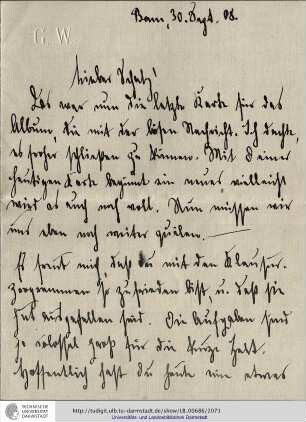 Bonn, 30. Sept. 08.
G. W.
Lieber Schatz!
Das war nun die letzte Karte für das
Album, die mit der bösen Nachricht. Ich dachte,
es froher schließen zu können. Mit Deiner
heutigen Karte beginnt ein neues, vielleicht
wird es auch noch voll. Nun müssen wir
uns eben noch weiter quälen.
Es freut mich, daß Du mit den Klausur-
so zufrieden bist, u. daß sie
gut ausgefallen sind. Die Aufgaben sind
ja kolossal groß für die kurze Zeit.
Hoffentlich hast Du heute nun etwas
http://tudigit.ulb.tu-darmstadt.de/show/LB_00686/2071
Universitäts- und Landesbibliothek Darmstadt